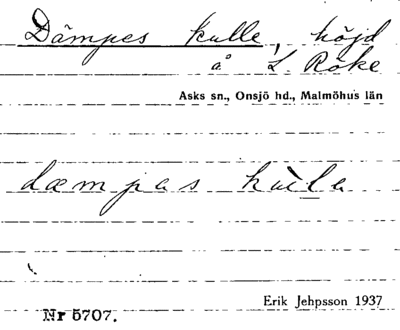 Dämpes kulle, höjd
å L. Röke
Asks sn., Onsjö hd., Malmöhus län
dæmpas kula
Erik Jehpsson 1937
Nr 5707.